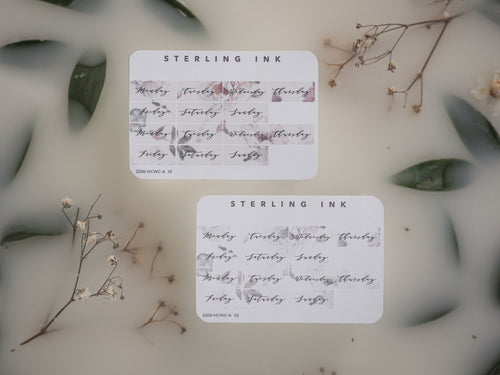 STERLING INK
Monday Tuesday Wednesday Thursday
Friday Saturday Sunday
Monday Tuesday Wednesday Thursday
Friday Saturday Sunday
2206-HCWC-A 01
STERLING INK
Monday Tuesday Wednesday Thursday
Friday Saturday Sunday
Monday Tuesday Wednesday Thursday
Friday Saturday Sunday
2206-HCWC-A 02